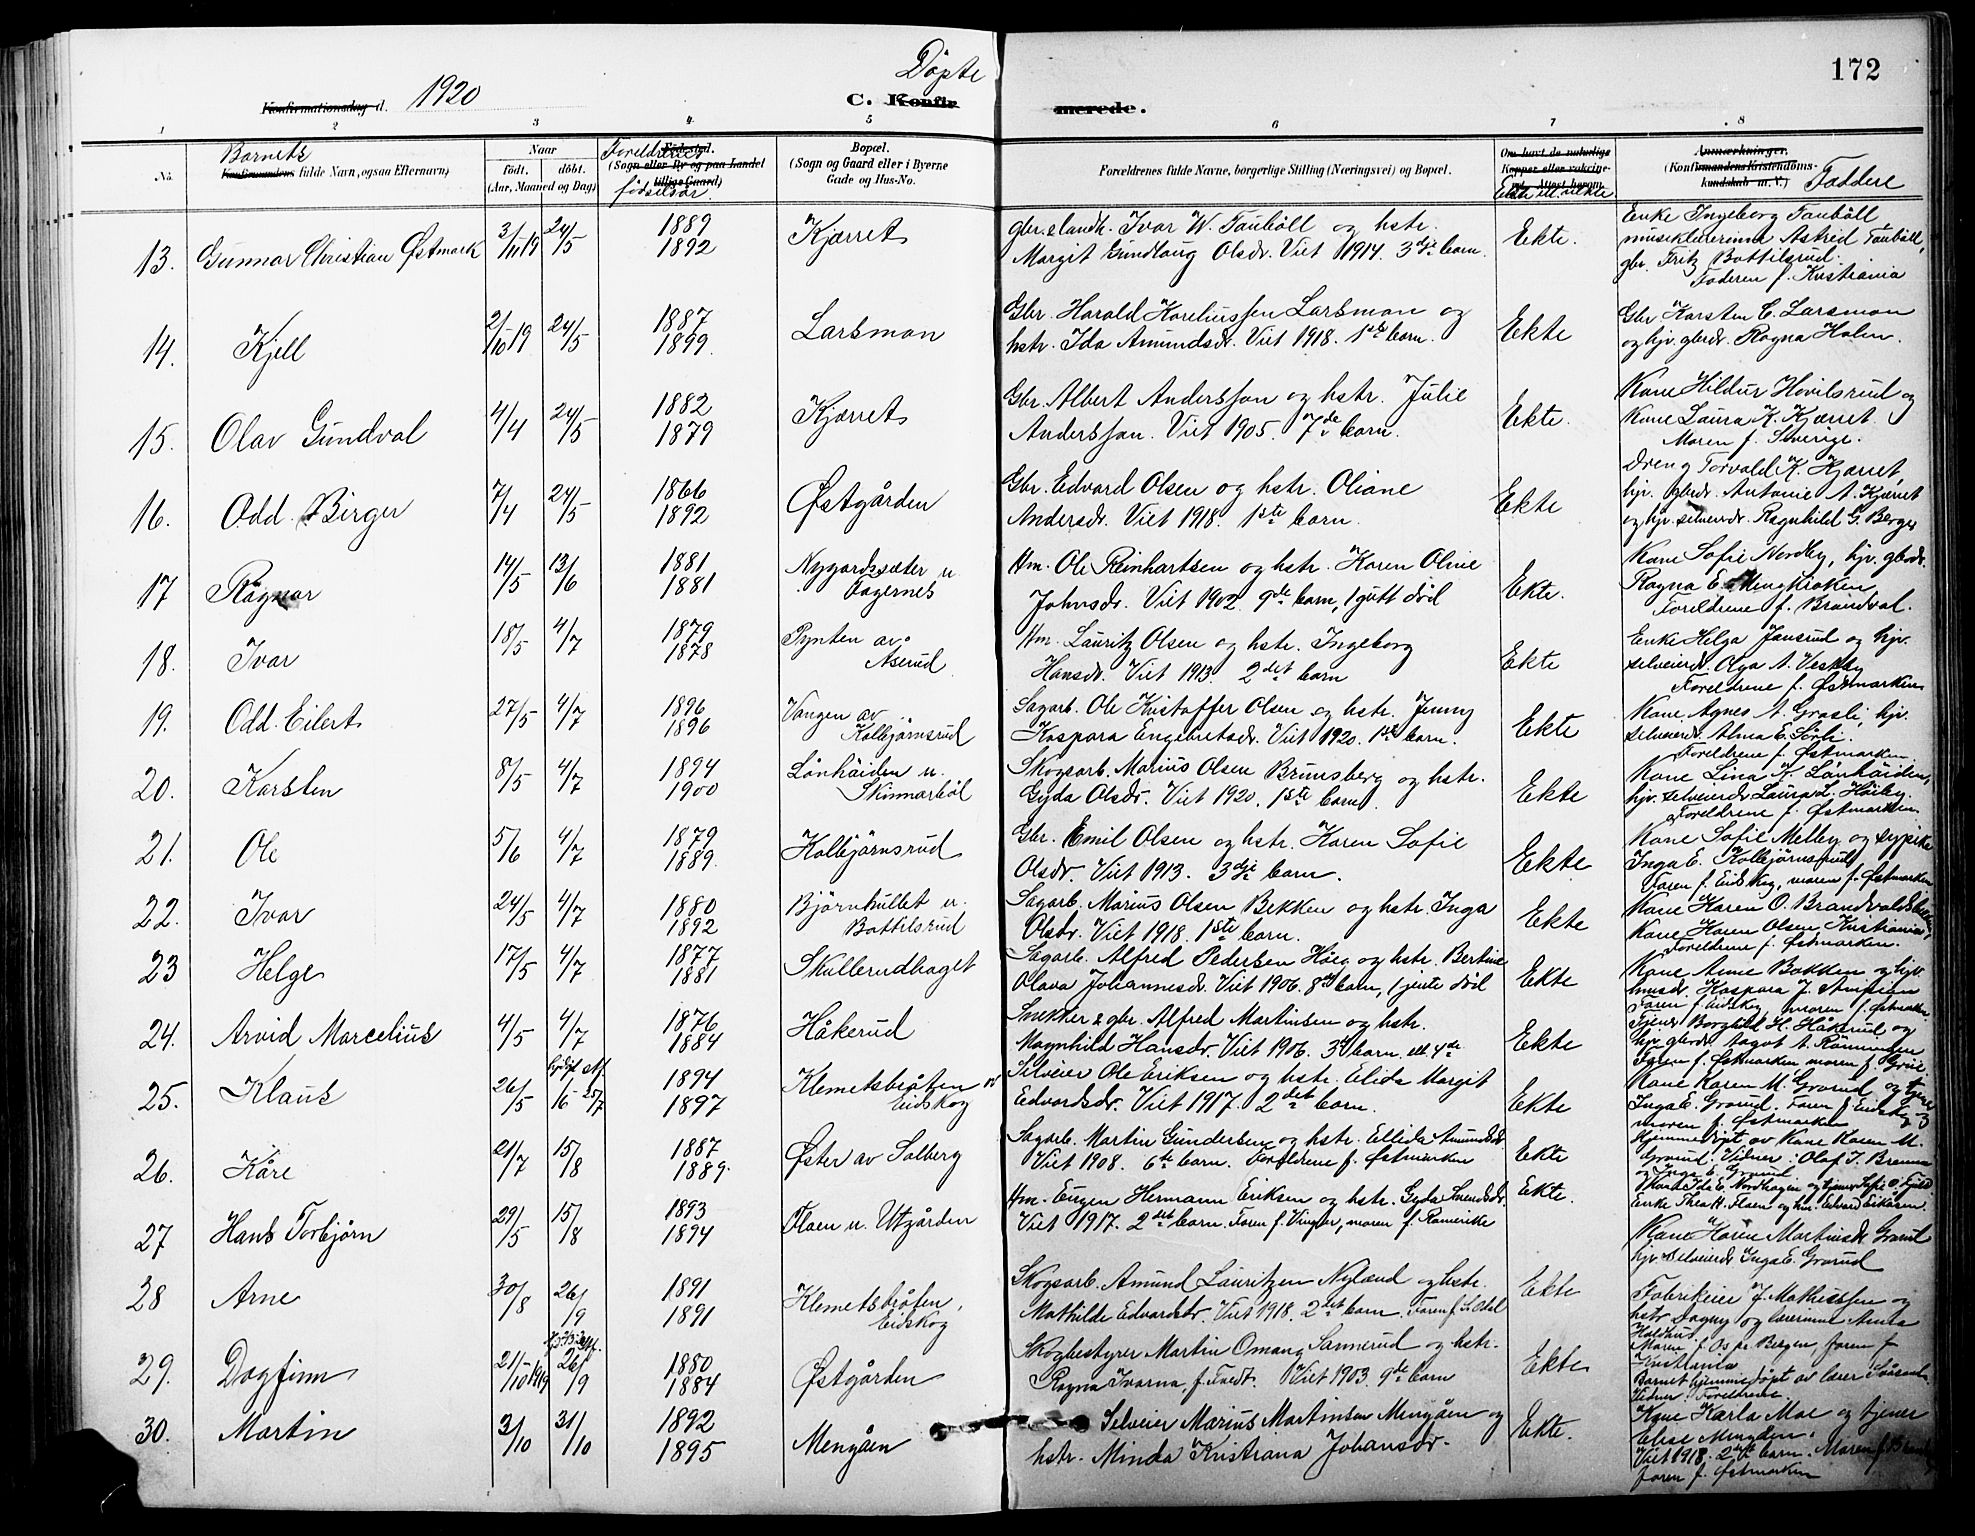 172
Döpte
Konfirmationsdag d. 1920
C. Konfir merede.
1 2 3 4 5 6 7 8
No.
Barnets
Konfirmandens fulde Navn, ogsaa Efternavn)
Naar
födt. döbt.
(Aar, Maaned og Dag)
Foreldrenes
Födested.
(Sogn eller By og paa Landet tillige Gaard)
födselsår.
Bopæl.
(Sogn og Gaard eller i Byerne
Gade og Hus-No.
Forældrenes fulde Navne, borgerlige Stilling (Næringsvei) og Bopæl.
Om havt de naturlige
Kopper eller vakcine-
ret. Attest herom.
Ekte ell. uekte
Anmærkninger.
(Konfirmandens Kristendoms-
kundskab m. V.)
Faddere
13. Gunnar Christian Østmark 3/11 19 24/5 1889 1892 Kjærret
gbr. & landh. Ivar W. Tauböll og hstr.
Margit Gundlaug Olsdr. Viet 1914. 3dje barn.
Ekte.
Enke Ingeborg Tauböll
musiklærerinne Astrid Tauböll,
gbr. Fritz Bottilsrud.
Faderen f. Kristiania
14. Kjell 2/10 19 24/5 1887 1899. Larsmon
Gbr. Harald Koreliussen Larsmon og
hstr. Ida Amundsdr. Viet 1918. 1ste barn.
Ekte
Gbr. Karsten C. Larsmon
og hjv. gbrdr. Ragna Holen.
15. Olav Gundval 4/4 24/5 1882 1879 Kjærret
Gbr. Albert Andersson og hstr. Julie
Andersson. Viet 1905. 7de barn.
Ekte.
Kone Hildur Hovilsrud og
Kone Laura K. Kjærret.
Moren f. Sverige.
16. Odd Birger 7/4 24/5 1866 1892 Østgården
Gbr. Edvard Olsen og hstr. Oliane
Andersdr. Viet 1918. 1ste barn.
Ekte
Dreng Torvald K. Kjærret,
hjv. gbrdr. Antonie A. Kjærret
og hjv. selveierdr. Ragnhild G. Berger
17 Ragnar 14/5 13/6 1881 1881 Nygardssæter u. Tagernes
Hm. Ole Reinhartsen og hstr. Karen Oline
Johnsdr. Viet 1902. 9de barn, 1 gutt död
Ekte.
Kone Sofie Nordby, hjv. gbrdr.
Ragna E. Mengkroken
Foreldrene f. Brandval.
18. Ivar 18/5 4/7 1879 1878 Pynten av Åserud
Hm. Lauritz Olsen og hstr. Ingeborg
Hansdr. Viet 1913. 2det barn
Ekte
Enke Helga Jansrud og hjv.
selveierdr. Olga A. Vestby
Foreldrene f. Østmarken
19. Odd Eilert 27/5 4/7 1896 1896 Vangen av Kolbjörnsrud
Sagarb. Ole Kristoffer Olsen og hstr. Jenny
Kaspara Engebretsdr. Viet 1920. 1ste barn.
Ekte
Kone Agnes A. Grasli, hjv.
selveierdr. Alma E. Sörli.
Foreldrene f. Østmarken
20. Karsten 8/5 4/7 1894 1900 Lönhäiden u. Skinnarböl
Skogsarb. Marius Olsen Brunsberg og hstr.
Gyda Olsdr. Viet 1920. 1ste barn.
Ekte
Kone Lina K. Lönhäiden,
hjv. selveierdr. Laura L. Häiby.
Foreldrene f. Østmarken.
21. Ole 5/6 4/7 1879 1889. Kolbjörnsrud
Gbr. Emil Olsen og hstr. Karen Sofie
Olsdr. Viet 1913. 3dje barn.
Ekte
Kone Sofie Melby og sypike
Inga E. Kolbjörnsrud
Faren f. Eidskog, moren f. Østmarken
22. Ivar 24/5 4/7 1880 1892 Björnhullet u. Bottilsrud
Sagarb. Marius Olsen Bekken og hstr. Inga
Olsdr. Viet 1918. 1ste barn.
Ekte
Kone Karen O.
Kone Karen Olsen, Kristiania
Foreldrene f. Østmarken.
23 Helge 17/5 4/7 1877 1881 Skullerudhaget
Sagarb. Alfred Pedersen Höeg og hstr. Bertine
Olava Johannesdr. Viet 1906. 8de barn, 1 jente död
Ekte
Kone Anne Bakken og hjv.
Kaspara J.
Faren f. Eidskog, moren f. Østmarken
24. Arvid Marcelius 4/5 4/7 1876 1884 Håkerud
Snekker & gbr. Alfred Martinsen og hstr.
Magnhild Hansdr. Viet 1906. 3dje barn, ell. 4de
Ekte
Tjener Borghild H. Håkerud og
hjv. gbrdr. Aagot A.
Faren f. Østmarken, moren f. Grue
25. Klaus 26/5 16/ 25/7 1894 1897 Klemetsbråten Eidskog
Selveier Ole Eriksen og hstr. Elida Margit
Edvardsdr. Viet 1917. 2det barn.
Ekte
Kone Karen M. Grorud og tjener
Inga E. Grorud. Faren f. Eidskog og
moren f. Østmarken
Hjemmedöpt av Kone Karen M.
Grorud. Vidner: Olaf J.
og Inga E. Grorud
26. Kåre 21/7 15/8 1887 1889. Öster av Solberg
Sagarb. Martin Gundersen og hstr. Ellida Amundsdr.
Viet 1908. 6te barn. Foreldrene f. Østmarken
Ekte
Kone Ida E. Nordhagen og tjener Sofie O.
27 Hans Torbjörn 29/5 15/8 1893 1894 Floen u. Utgården
Hm. Eugen Hermann Eriksen og hstr. Gyda Svendsdr.
Viet 1917. 2det barn. Faren f. Vinger, moren f. Romerike
Ekte.
Enke Thea H. Floen og hm. Edvard Eriksen.
28 Arne 30/8 26/9 1891 1891 Klemetsbråten, Eidskog
Skogsarb. Amund Lauritzen Nyland og hstr.
Mathilde Edvardsdr. Viet 1918. 2det barn. Faren f. S. Odal
Ekte
Kone Karen Martinsdr. Grorud
hjv. selveierdr. Inga E. Grorud
29. Dagfinn 21/10 1919 26/9 1880 1884 Østgården
Skogbestyrer Martin Omang Sannerud og hstr.
Ragna Ivarna, f. Tvedt. Viet 1903. 9de barn
Ekte
Fabrikeier J. Mathiessen og
hstr. Dagny og lærerinne Anta
Holdhus
Moren f. Os pr. Bergen, faren f.
Kristiania
Barnet hjemmedöpt av lærer
Vidner: Foreldrene.
30. Martin 3/10 31/10 1892 1895 Mengåen
Selveier Marius Martinsen Mengåen og
hstr. Minda Kristiana Johansdr.
Ekte.
Kone Karla Moe og tjener
Elise Mengden.
Viet 1918. 2det barn. Moren f.
faren f. Østmarken